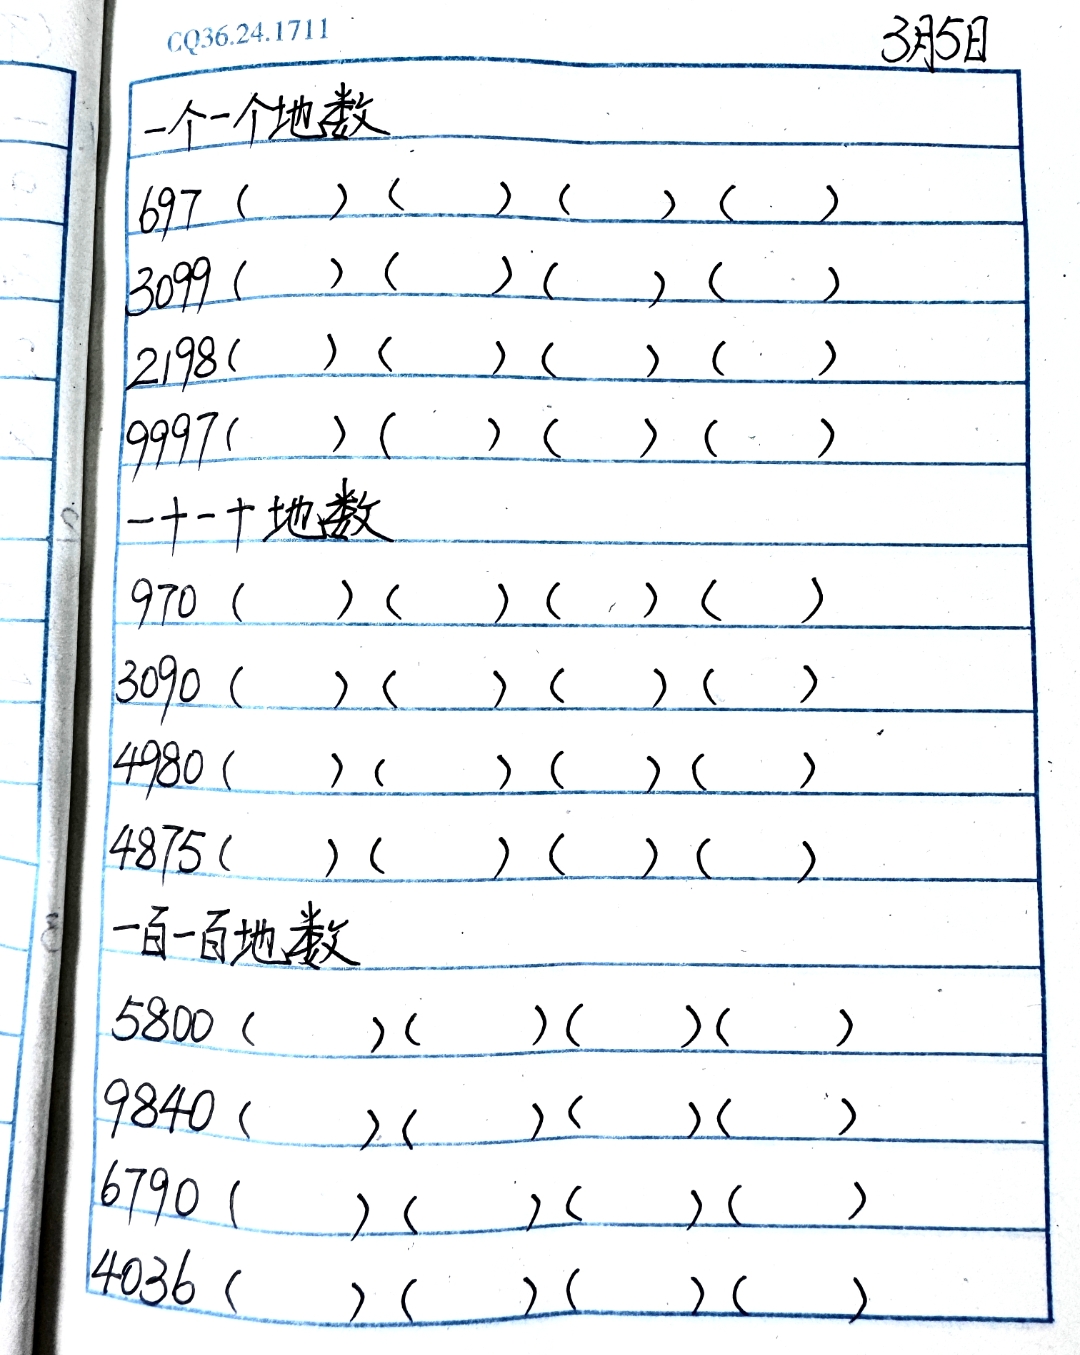 CQ36.24.1711
3月5日
一个一个地数
697 ( ) ( ) ( ) ( )
3099 ( ) ( ) ( ) ( )
2198 ( ) ( ) ( ) ( )
9997 ( ) ( ) ( ) ( )
一十一十地数
970 ( ) ( ) ( ) ( )
3090 ( ) ( ) ( ) ( )
4980 ( ) ( ) ( ) ( )
4875 ( ) ( ) ( ) ( )
一百一百地数
5800 ( ) ( ) ( ) ( )
9840 ( ) ( ) ( ) ( )
6790 ( ) ( ) ( ) ( )
4036 ( ) ( ) ( ) ( )